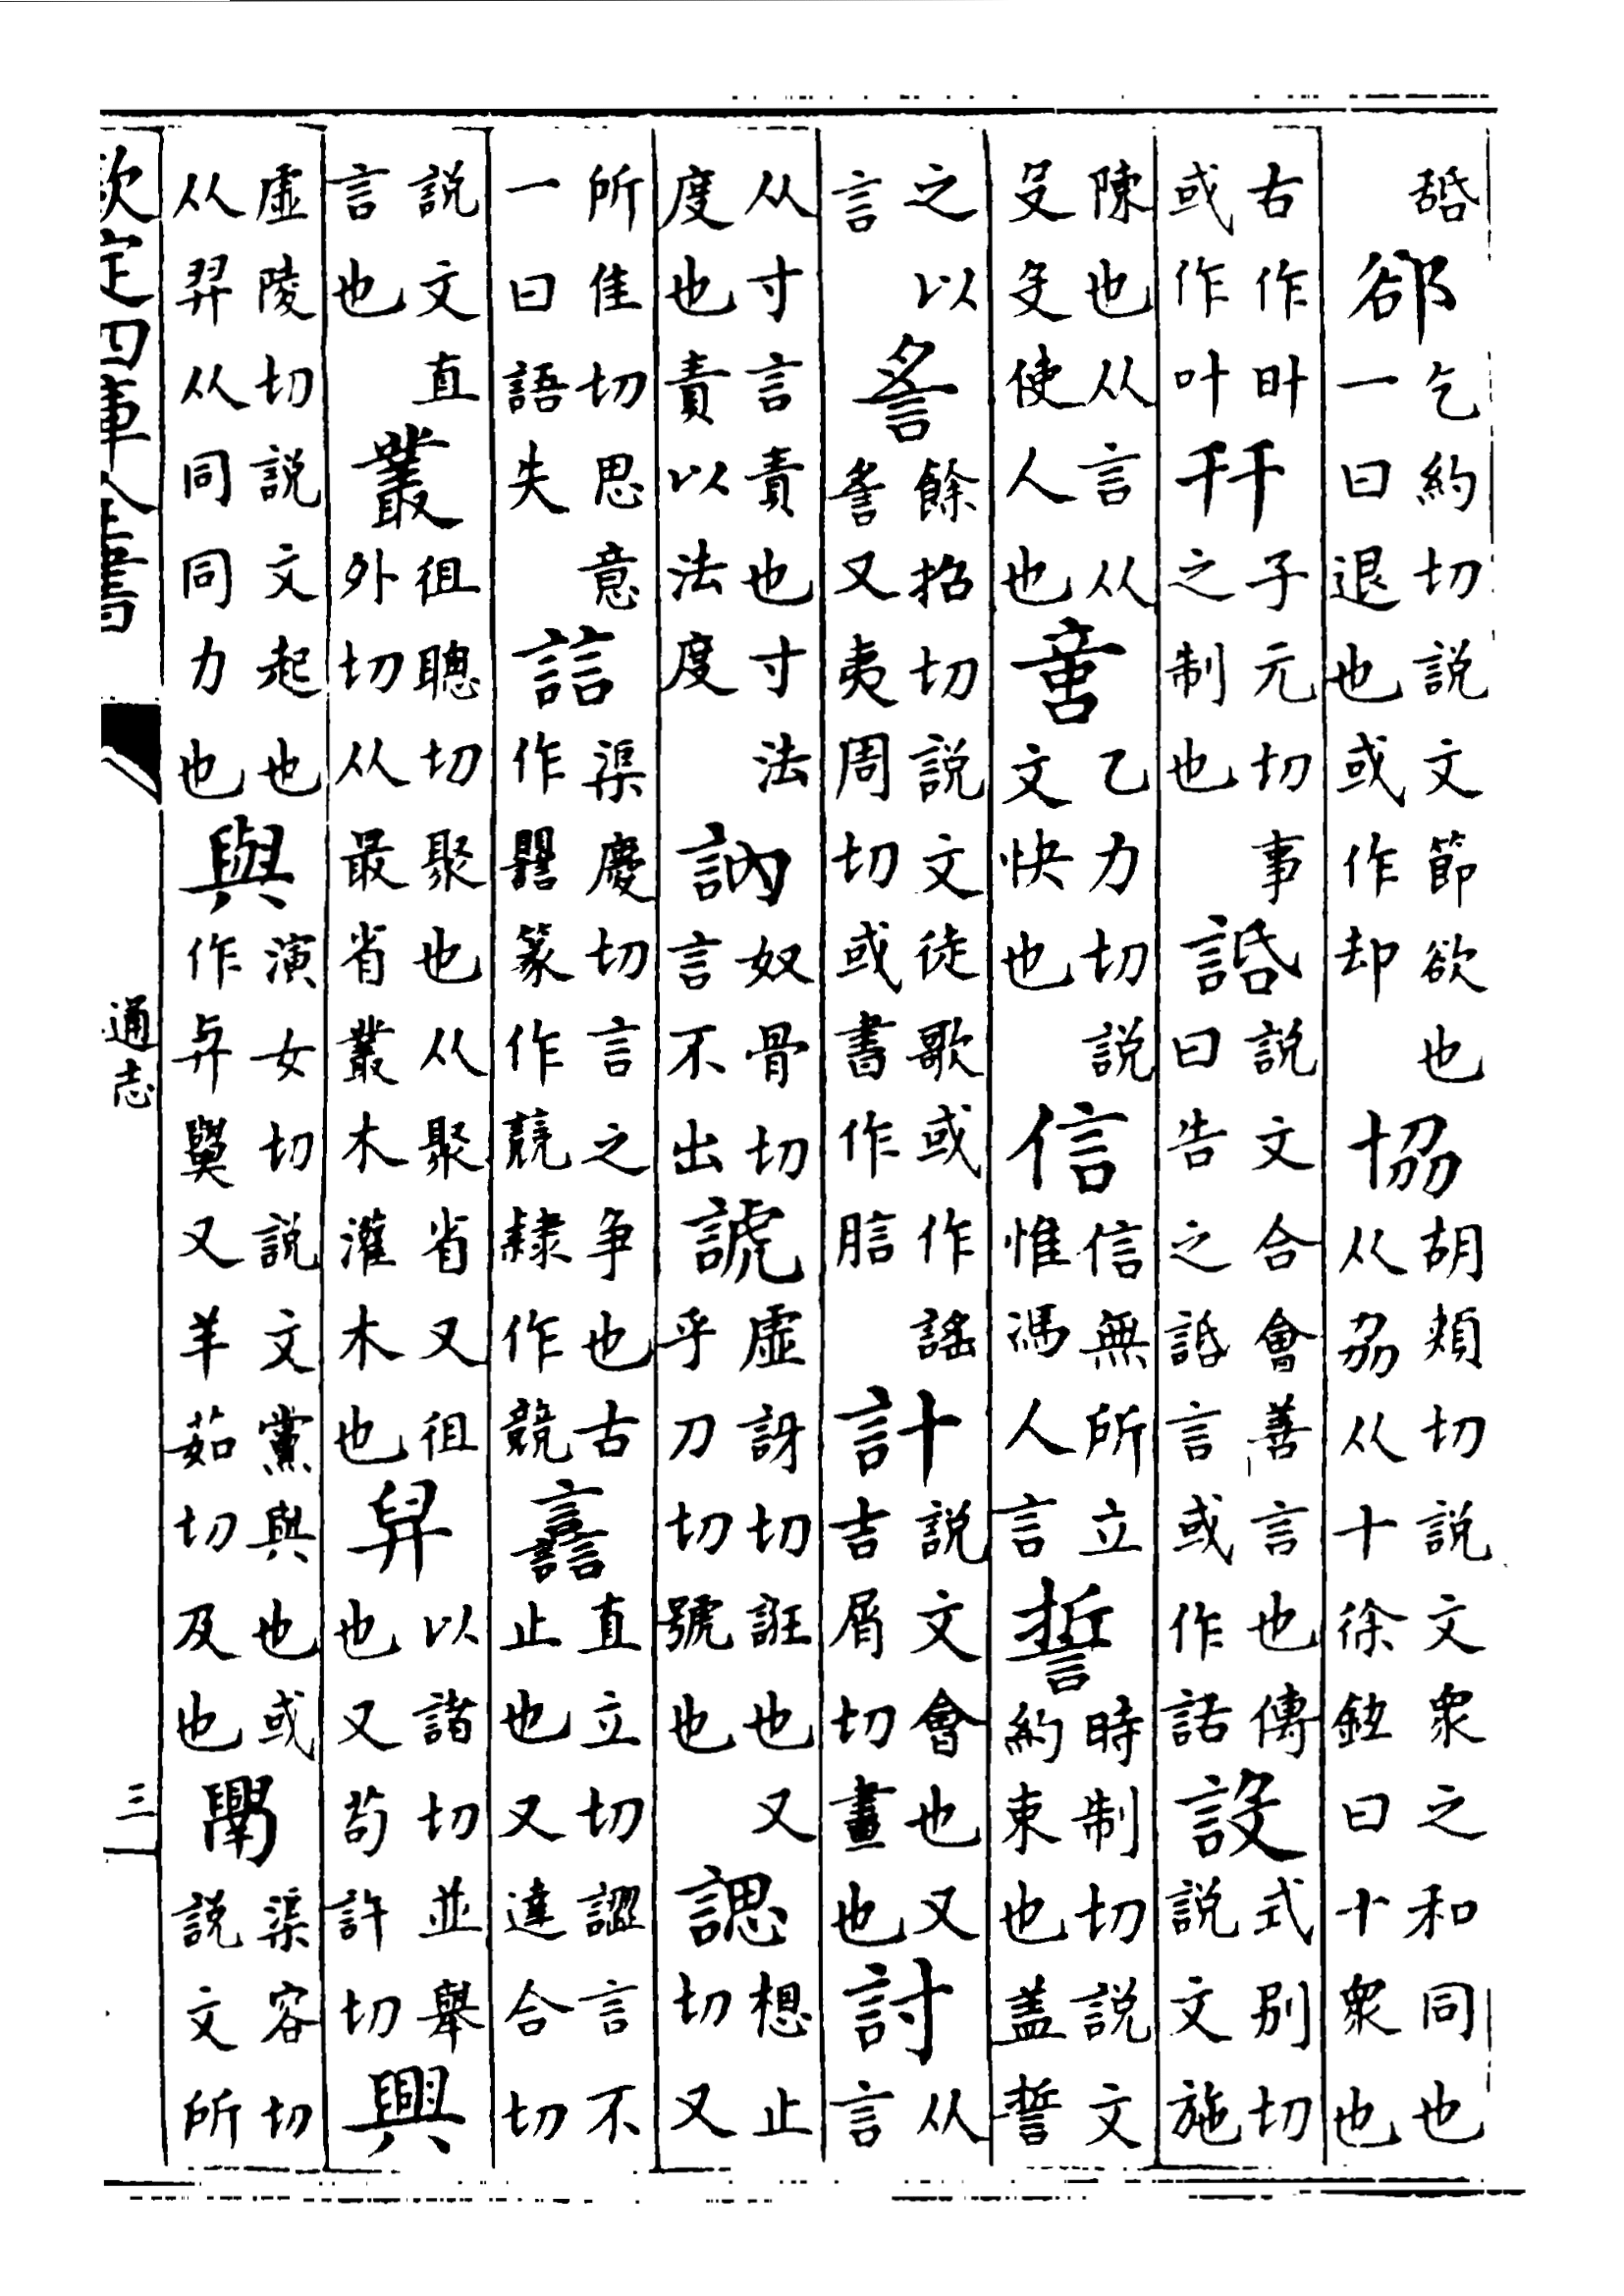 郤乞約切說文節欲也一曰退也或作却協胡頰切說文衆之和同也从劦从十徐鉉曰十衆也
右作旪或作叶子元切事之制也說文合會善言也傳曰告之言或作話設式别切說文施
陳也从言从殳殳使人也乙力切說文快也信信無所立惟馮人言誓時制切說文約束也盖誓
之以言䚻餘招切說文徒歌或作謠䚻又夷周切或書作計說文會也又吉屑切畫也討从言
从寸言責也寸法度也責以法度訥奴骨切言不出諕虛訝切誑也又乎刀切號也諰想止切又
所佳切思意一曰語失誩渠慶切言之争也古作篆作競隸作竸譶直立切言不止也又達合切
說文直言也叢徂聰切聚也从聚省又徂外切从最省叢木灌木也舁以諸切並舉也又苟許切興
虛陵切說文起也从舁从同同力也與演女切說文黨與也或作又羊茹切及也渠容切說文所
欽定四庫全書
通志
三